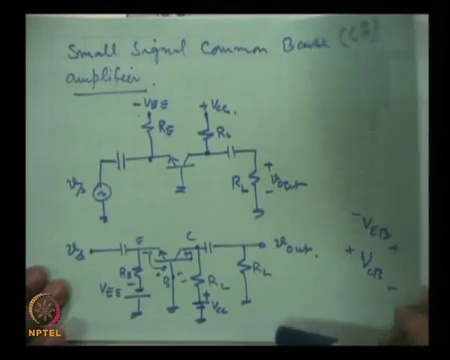 Small Signal Common Base (CB)
amplifier.
-VEE +VCC
RE RC
vs RL + vout -
vs E C vout.
RE B RC RL
VEE VCC
- VEB +
+ VCB -
NPTEL